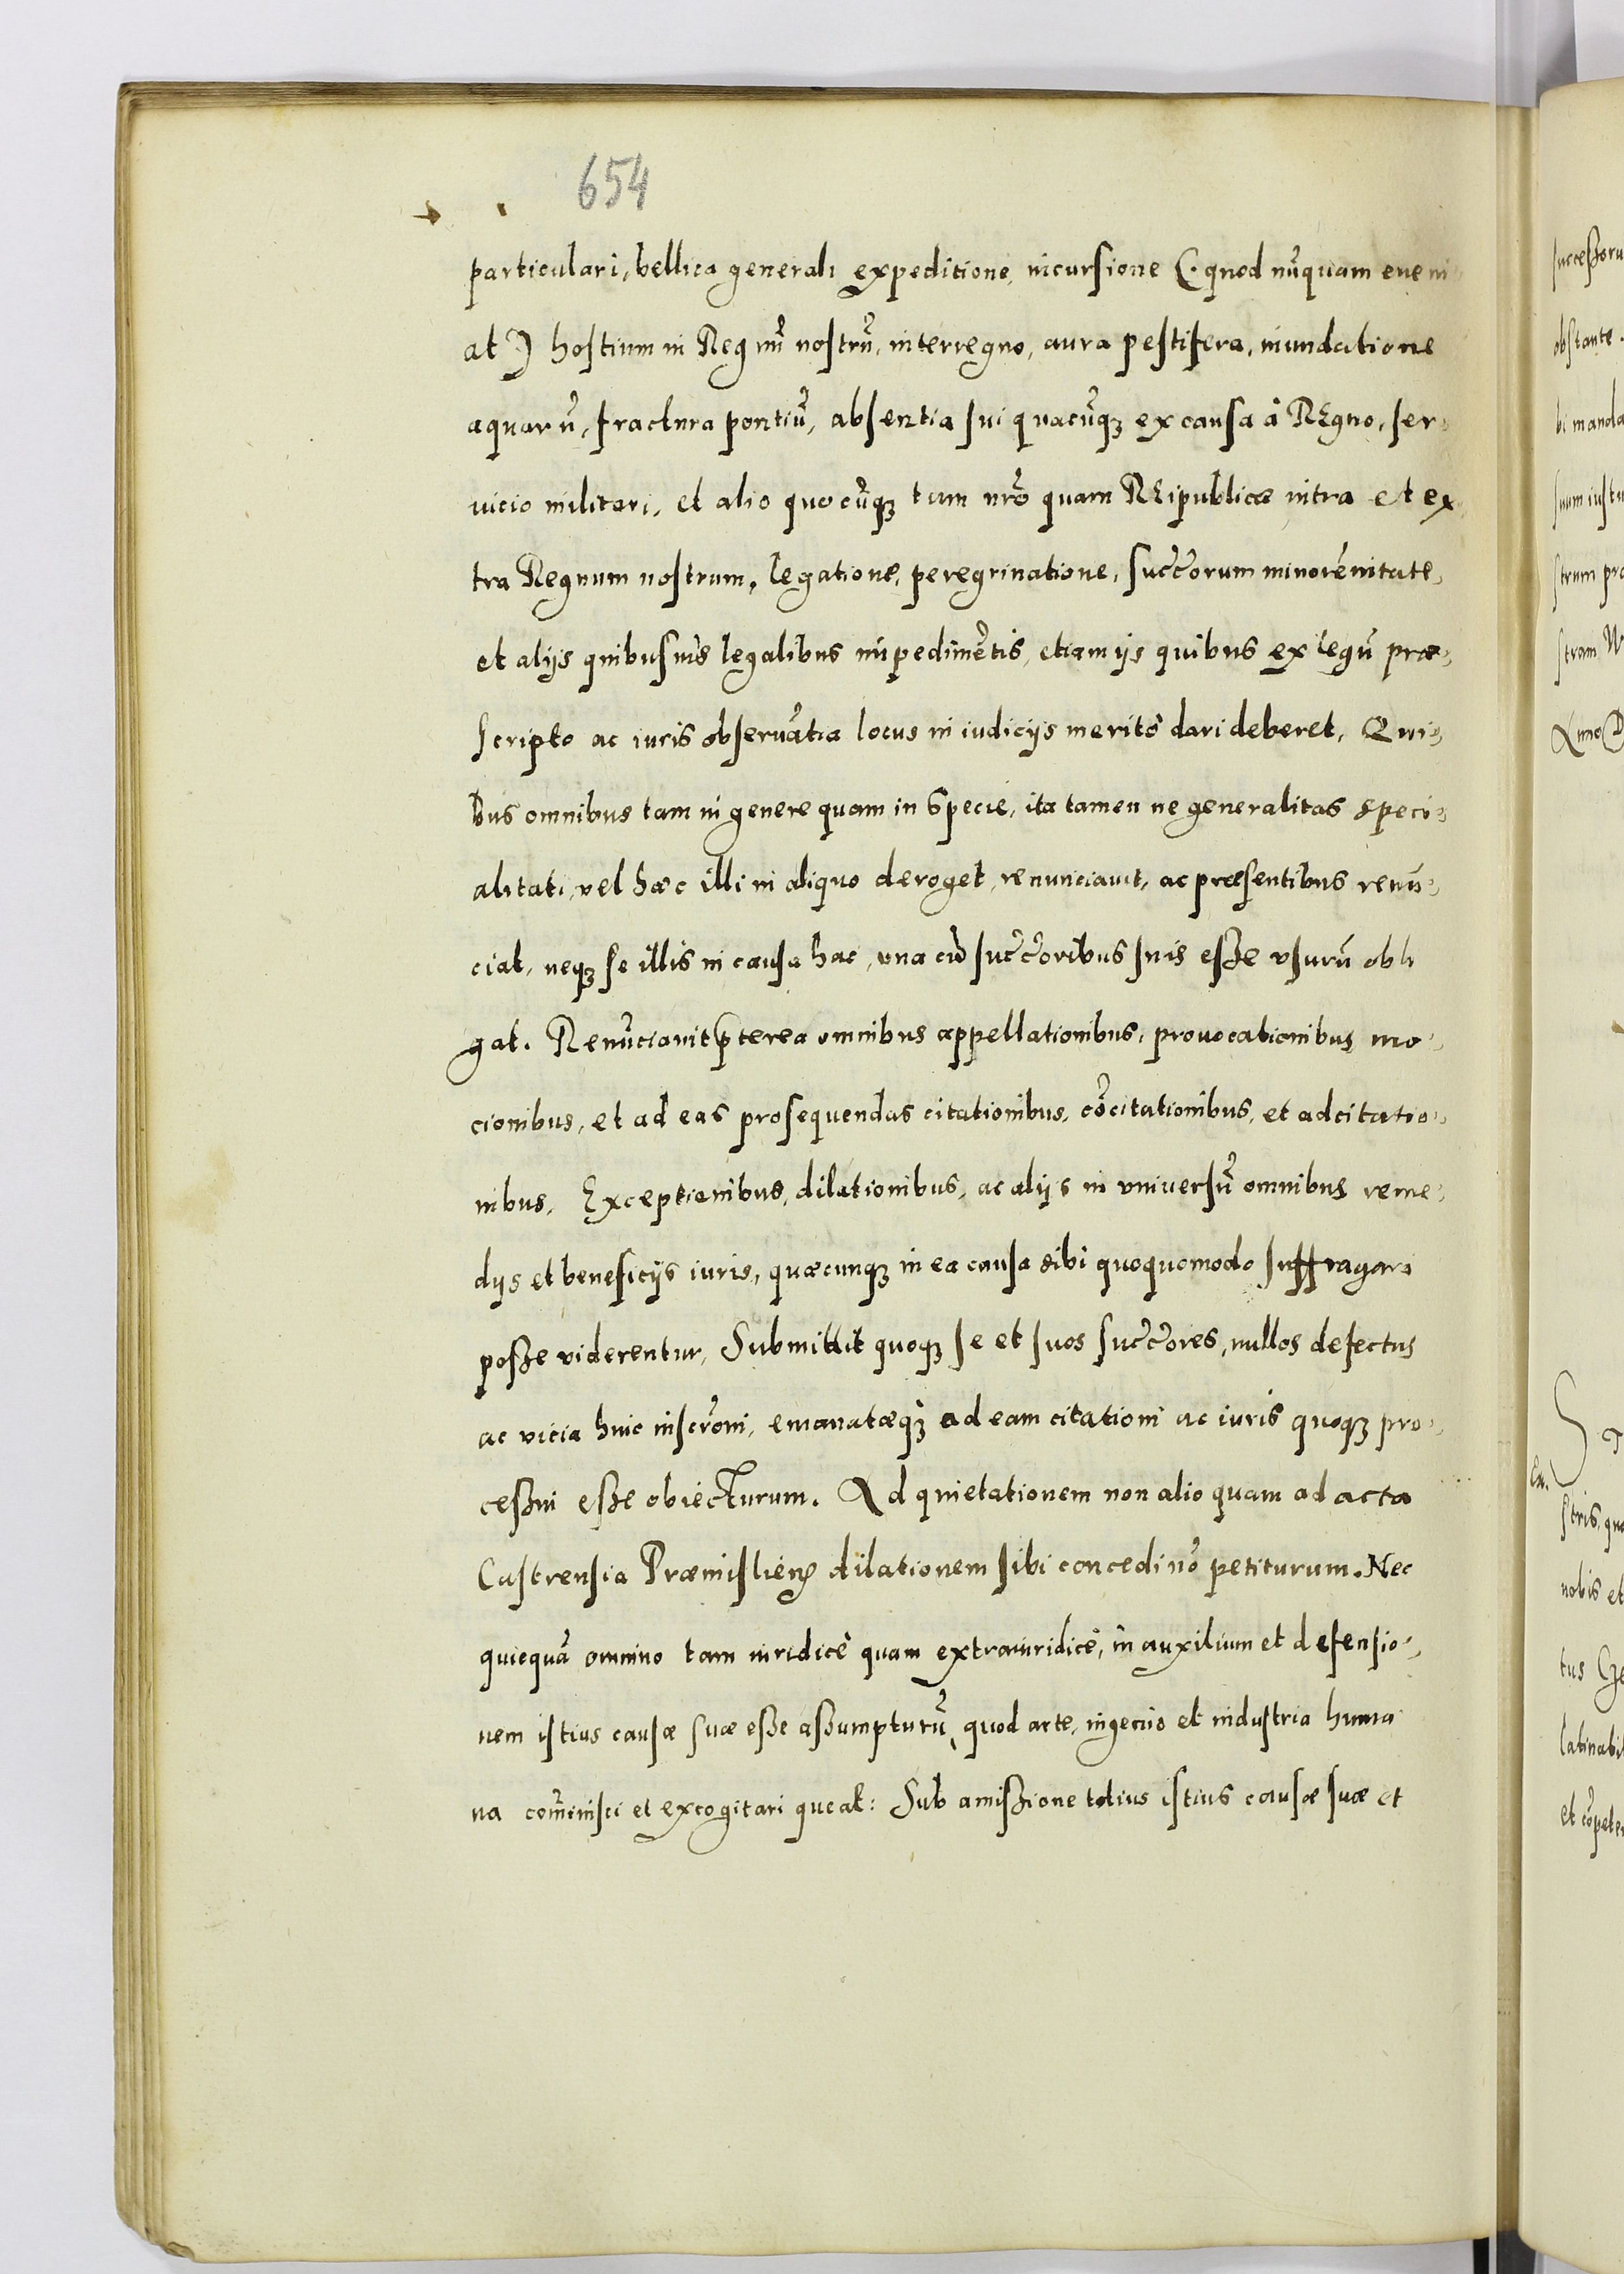 654
particulari, bellica generali expeditione, incursione (quod nũquam eueni
at) hostium in Regnũ nostrũ, interregno, aura pestifera, inundatione
aquarũ, fractura pontiũ, absentia sui quacũqꝫ ex causa à REgno, ser⸗
uicio militari, et alio quocũqꝫ tum nr̃o quam REipublicæ intra et ex⸗
tra Regnum nostrum, legatione, peregrinatione, succ̃orum minorẽnitate,
et alijs quibusuis legalibus impedimẽtis, etiam ijs quibus ex legũ præ⸗
scripto ac iuris obseruãtia locus in iudicijs meritò dari deberet, Qui⸗
bus omnibus tam in genere quam in specie, ita tamen ne generalitas speci⸗
alitati, vel hæc illi in aliquo deroget, renunciauit, ac præsentibus renũ⸗
ciat, neqꝫ se illis in causa hac, una cũ succ̃oribus suis eſse vsurũ obli
gat. Renũciauit p̃terea omnibus appellationibus, prouocationibus mo⸗
cionibus, et ad eas prosequendas citationibus, cõcitationibus, et adcitatio⸗
nibus, Exceptionibus, dilationibus, ac alijs in vniuersũ omnibus reme⸗
dijs et beneficijs iuris, quæcunqꝫ in ea causa sibi quoquomodo suffragari
poſse viderentur, Submittit quoqꝫ se et suos succ̃ores, nullos defectus
ac vicia huic inscr̃oni, emanatæqꝫ ad eam citationi ac iuris quoqꝫ pro⸗
ceſsui eſse obiecturum. Ad quietationem non alio quam ad acta
Castrensia Præmislieñ dilationem sibi concedi nõ petiturum. Nec
quicquã omnino tam iuridicè quam extraiuridicè, in auxilium et defensio⸗
nem istius causæ suæ eſse aſsumpturũ, quod arte, ingenio et industria huma
na com̃inisci et excogitari queat: Sub amiſsione totius istius causæ suæ et